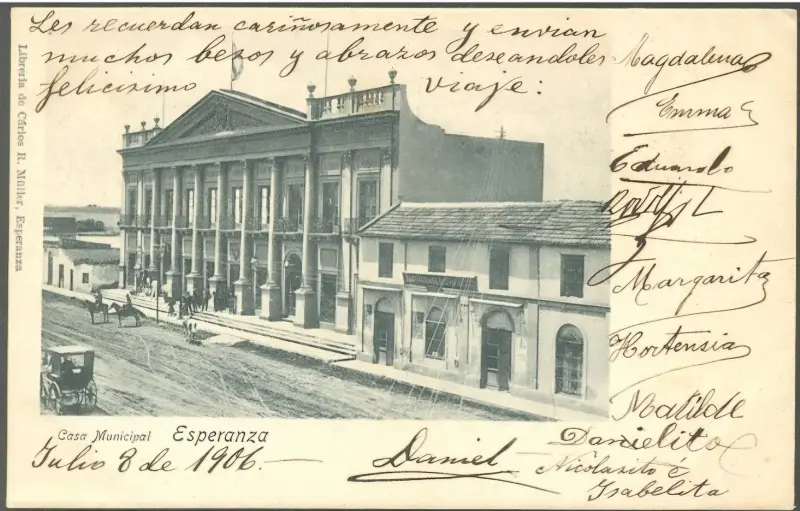 Les recuerdan cariñosamente y envian
muchos besos y abrazos deseandoles
felicisimo viaje:
Magdalena
Emma
Eduardo
Margarita
Hortensia
Matilde
Danielito
Nicolasito é
Isabelita
Daniel
Julio 8 de 1906.
Casa Municipal Esperanza
Libreria de Cárlos R. Müller, Esperanza